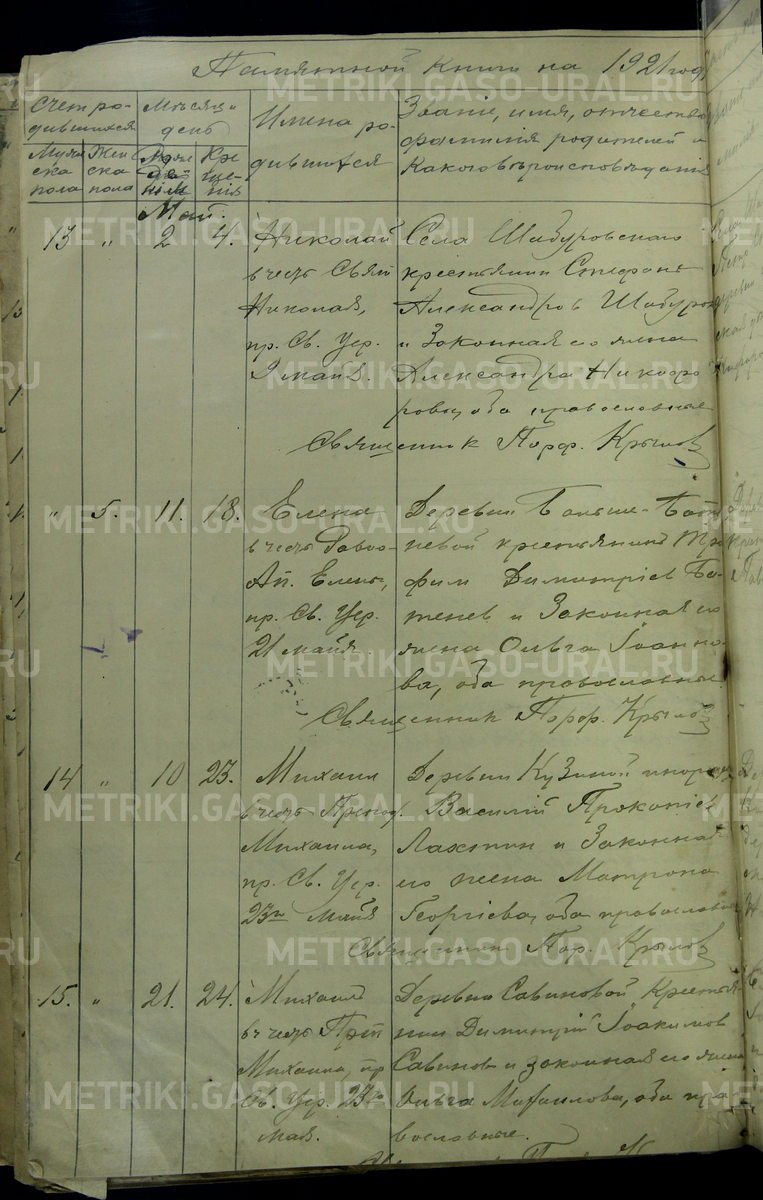 Памятной книги на 1921 годъ
Счет ро-
дившихся
Мѣсяц и
день
Имена ро-
дившихся
Званіе, имя, отчество
фамилія родителей и
какого вѣроисповѣданія
Муже
ска
пола
Жен
ска
пола
Рож
де
нія
Кре
ще-
нія
Май.
13 " 2 4. Николай
в честь Свят
Николая,
пр. Св. Цер.
9 мая.
Села Шабуровскаго
крестьянин Стефанъ
Александров Шабуров
и законная его жена
Александра Никифо
рова, оба православные
Священник Порф. Крылов
" 5. 11. 18. Елена
в честь Равно-
Ап. Елены,
пр. Св. Цер.
21 майя.
Деревни
крестьянинъ Тро
фим Димитріев Бо-
тенев и законная его
жена Ольга Іоанно-
ва, оба православные
Священник Порф. Крылов
14 " 10 23. Михаил
в честь Препод.
Михаила,
пр. Св. Цер.
23го Майя
Деревни Кузиной
Василій Прокопіев
Лахтин и законная
его жена Матрона
Георгіева, оба православные
Священник Пор. Крылов
15. " 21. 24. Михаил
в честь Преп
Михаила, пр
Св. Цер. 23го
мая.
Деревни Савиновой Крестья
нин Димитрій Іоакимов
Савинов и законная его жена
Ольга Михаилова, оба пра
вославные.
METRIKI.GASO-URAL.RU